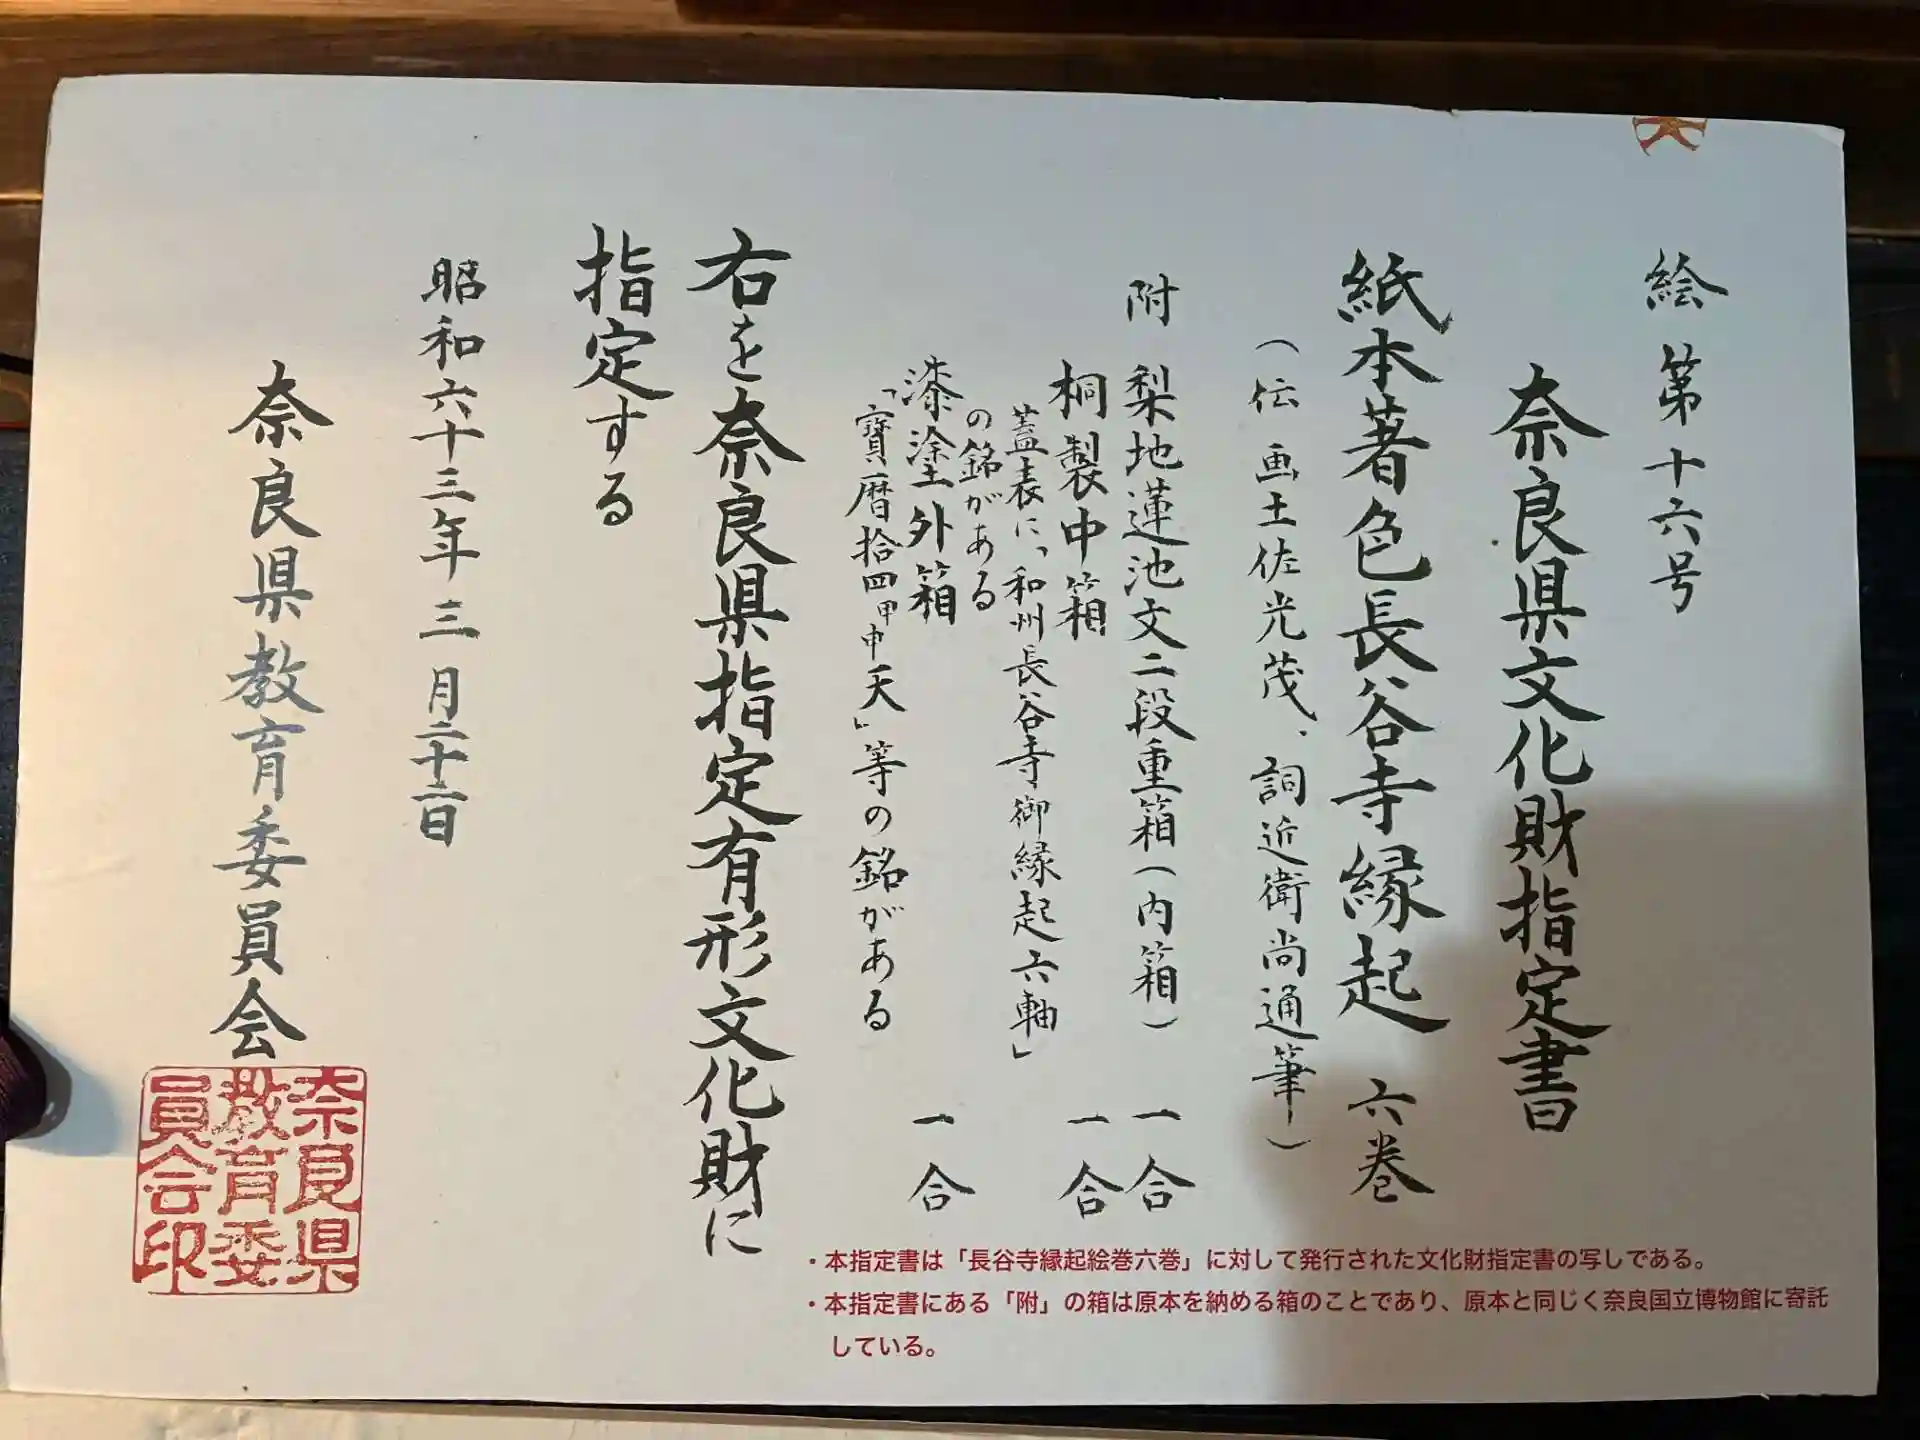 絵第十六号
奈良県文化財指定書
紙本著色長谷寺縁起 六巻
(伝 画土佐光茂、詞近衛尚通筆)
附 梨地蓮池文二段重箱(内箱) 一合
桐製中箱 一合
蓋表に「和州長谷寺御縁起六軸」
の銘がある
漆塗外箱 一合
「寶暦拾四甲申天」等の銘がある
右を奈良県指定有形文化財に
指定する
昭和六十三年三月二十二日
奈良県教育委員会
奈良県
教育委
員会印
・本指定書は「長谷寺縁起絵巻六巻」に対して発行された文化財指定書の写しである。
・本指定書にある「附」の箱は原本を納める箱のことであり、原本と同じく奈良国立博物館に寄託
している。